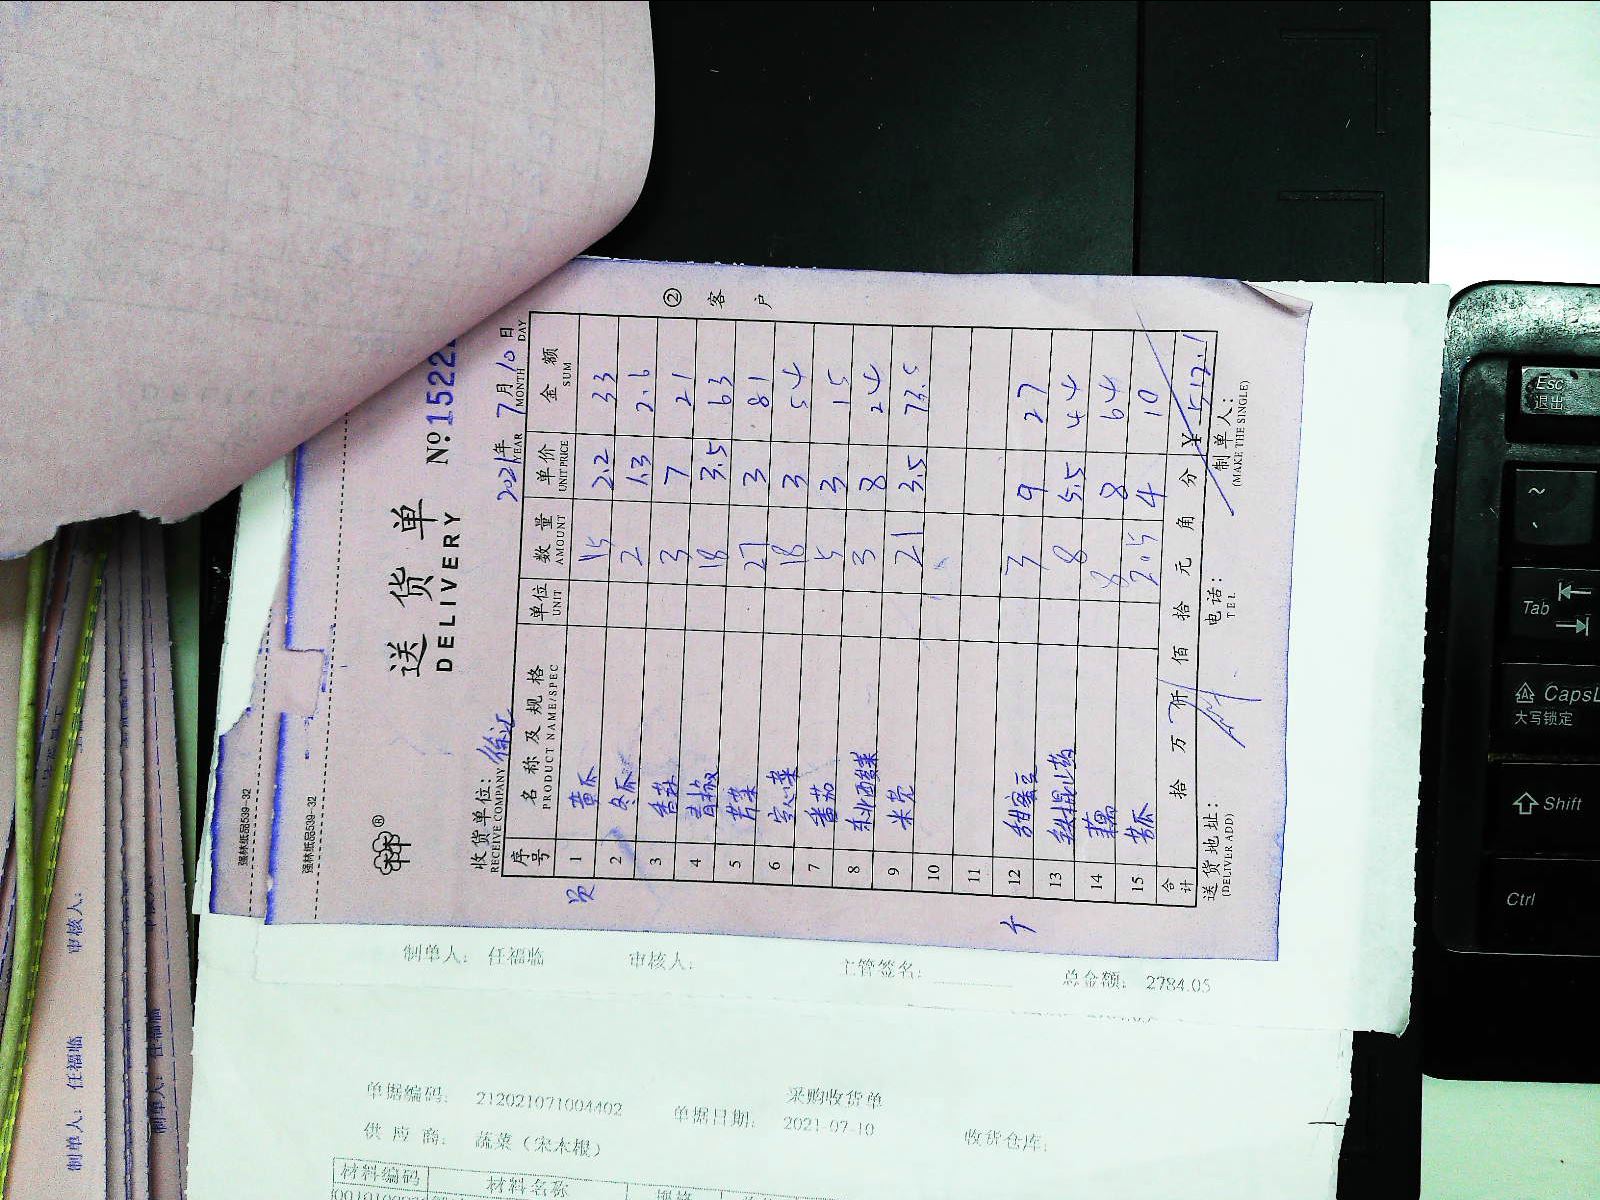 送货单
DELIVERY
No 1522
收货单位: 徐汇
RECEIVE COMPANY
2021年 7月 10日
YEAR MONTH DAY
② 客户
序号 名称及规格 单位 数量 单价 金额
PRODUCT NAME/SPEC UNIT AMOUNT UNIT PRICE SUM
1 黄瓜 15 2.2 33
2 冬瓜 2 1.3 2.6
3 香菇 3 7 21
4 青椒 18 3.5 63
5 芹菜 27 3 81
6 空心菜 18 3 54
7 番茄 5 3 15
8 东北酸菜 3 8 24
9 米苋 21 3.5 73.5
10
11
12 甜蜜豆 3 9 27
13 铁棍山药 8 5.5 44
14 藕 8 8 64
15 苦瓜 2.5 4 10
合计 拾 万 仟 佰 拾 元 角 分 ¥ 512.1
送货地址: 电话: 制单人:
(DELIVER ADD) TEL (MAKE THE SINGLE)
强林纸品539-32
强林纸品539-32
制单人: 任福临 审核人: 主管签名: 总金额: 2784.05
采购收货单
单据编码: 212021071004402 单据日期: 2021-07-10
供应商: 蔬菜(宋木根) 收货仓库:
材料编码 材料名称 规格
制单人: 任福临 审核人:
制单人: 任福临
Esc
退出
~
Tab
CapsL
大写锁定
Shift
Ctrl